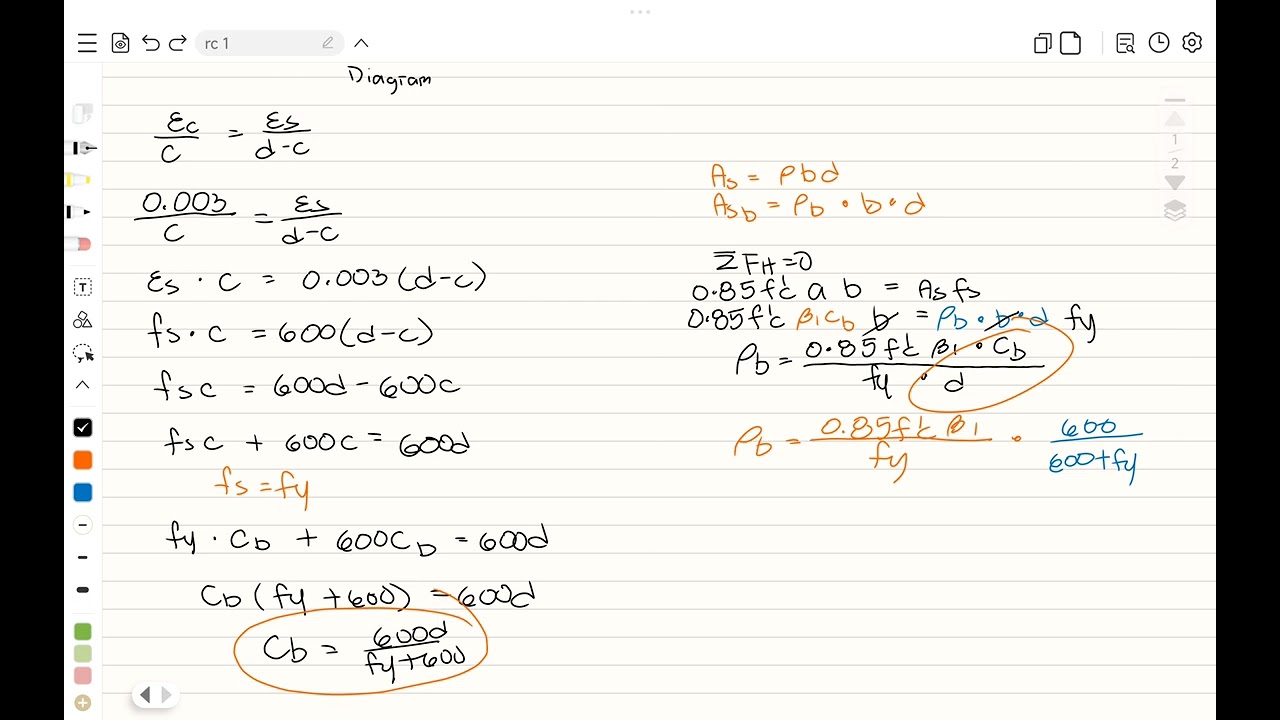 rc 1
Diagram
εc/c = εs/d-c
0.003/c = εs/d-c
εs · c = 0.003(d-c)
fs · c = 600(d-c)
fsc = 600d - 600c
fsc + 600c = 600d
fs = fy
fy · Cb + 600Cb = 600d
Cb (fy + 600) = 600d
Cb = 600d/fy+600
As = ρbd
Asb = ρb · b · d
ΣFH=0
0.85fc' a b = Asfs
0.85fc' β1Cb b = ρb · b · d fy
ρb = 0.85fc' β1 · Cb/fy · d
ρb = 0.85fc' β1/fy · 600/600+fy
1
2
T